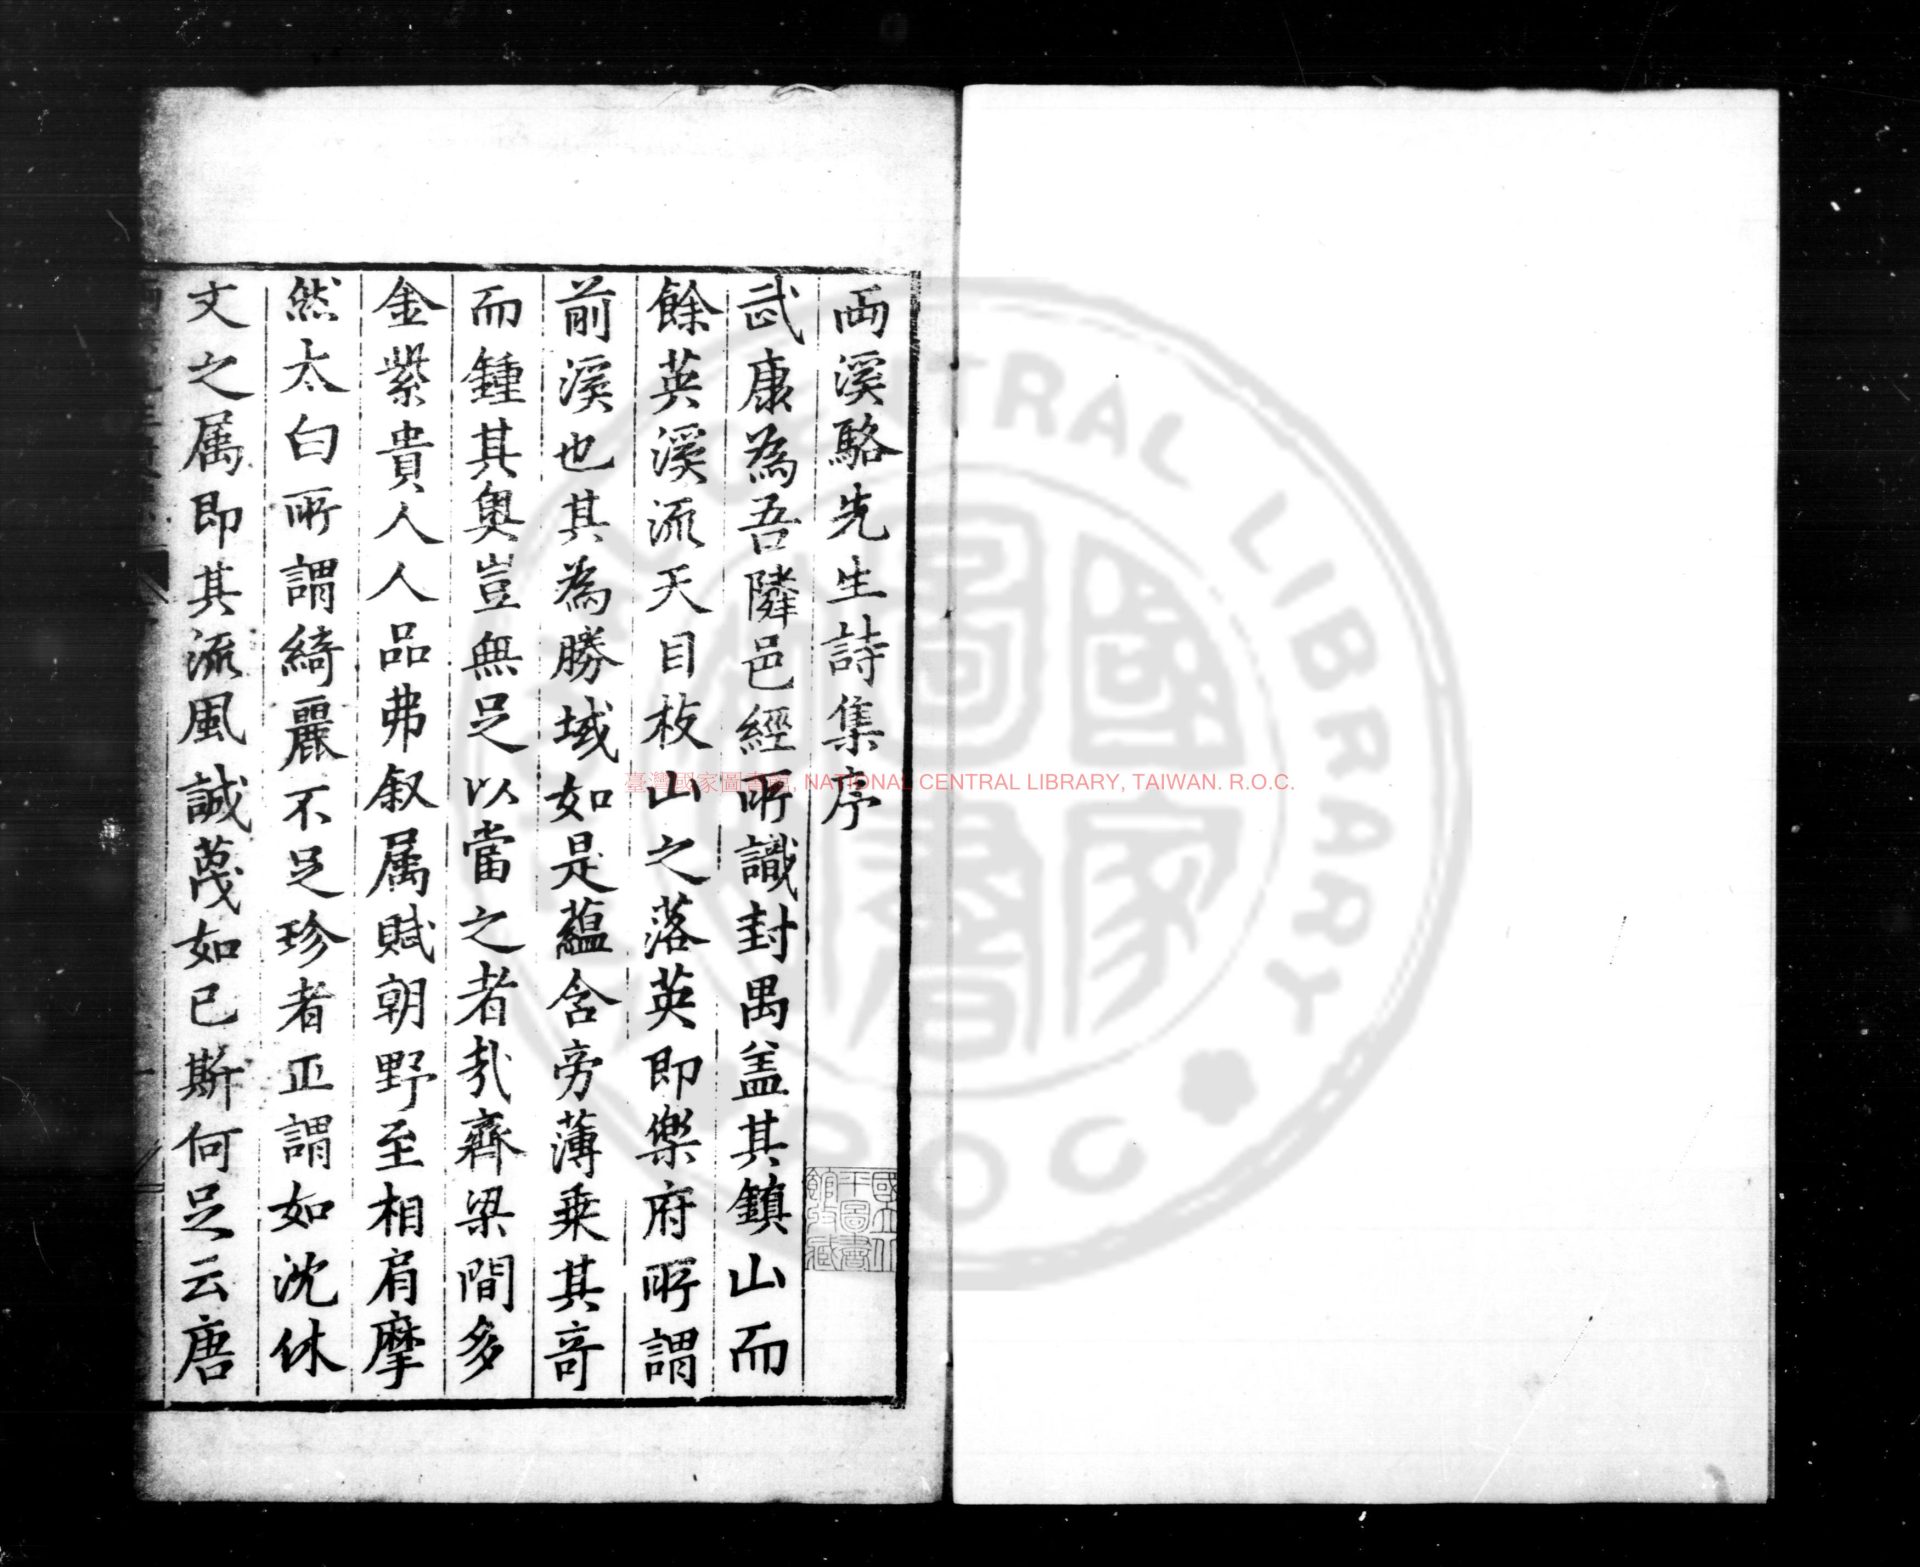 兩溪駱先生詩集序
武康為吾隣邑經所識封禺盖其鎮山而
餘英溪流天目枝山之落英即樂府所謂
前溪也其為勝域如是蘊含旁薄乗其竒
而鍾其奧豈無足以當之者㦲齊梁間多
金紫貴人人品弗叙属賦朝野至相肩摩
然太白所謂綺麗不足珍者正謂如沈休
文之属即其流風誠蔑如已斯何足云唐
臺灣國家圖書館, NATIONAL CENTRAL LIBRARY, TAIWAN. R.O.C.